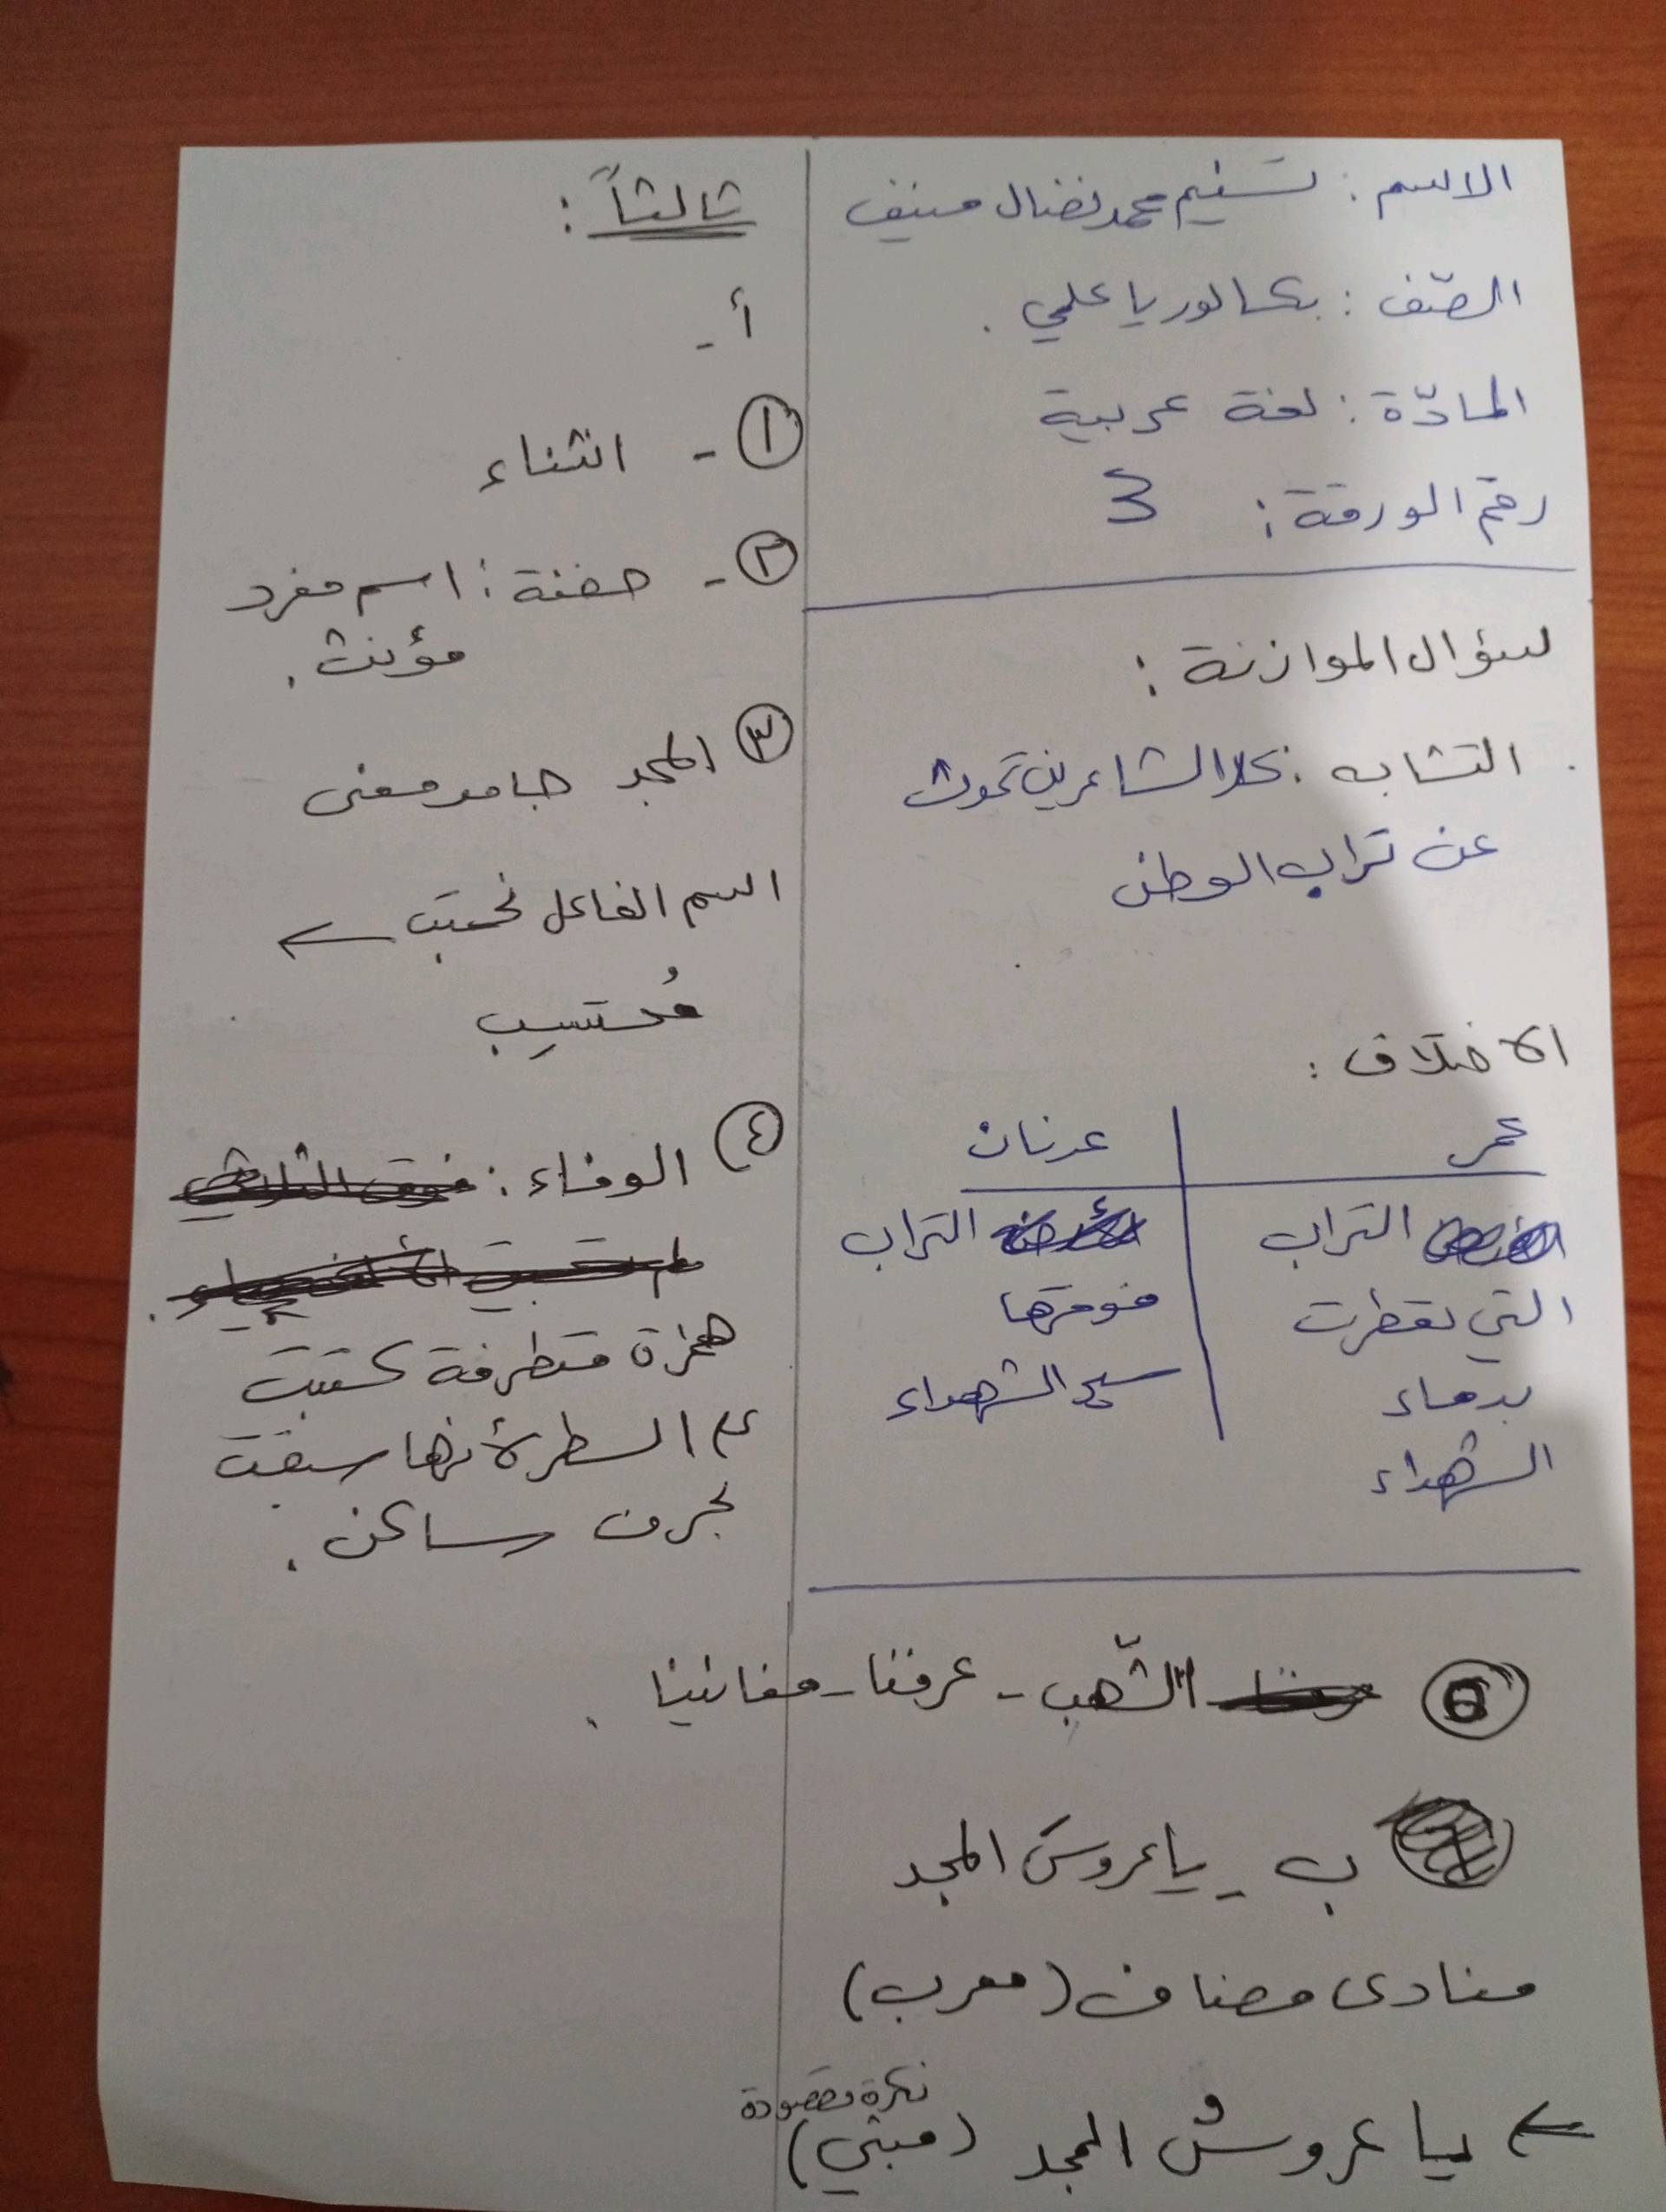 الاسم: تسنيم محمد نضال منيف
الصّف: بكالوريا علمي.
المادّة: لغة عربية
رقم الورقة: 3
سؤال الموازنة:
التشابه: كلا الشاعرين تحدث
عن تراب الوطن
الاختلاف:
عمر
عدنان
التراب
التي تعطرت
بدماء
الشهداء
التراب
فوقها
الشهداء
ثالثاً:
أ-
① - انثناء
② - حفنة: اسم مفرد
مؤنث.
③ المجد جامد معنى
اسم الفاعل نحتسب ←
مُحتسِب
④ الوفاء:
همزة متطرفة كتبت
على السطر لأنها سبقت
بحرف ساكن.
⑤ الشّهب - عرفنا - مغانينا.
ب - يا عروسَ المجد
منادى مضاف (معرب)
← يا عروسُ المجد (مبني)
نكرة مقصودة